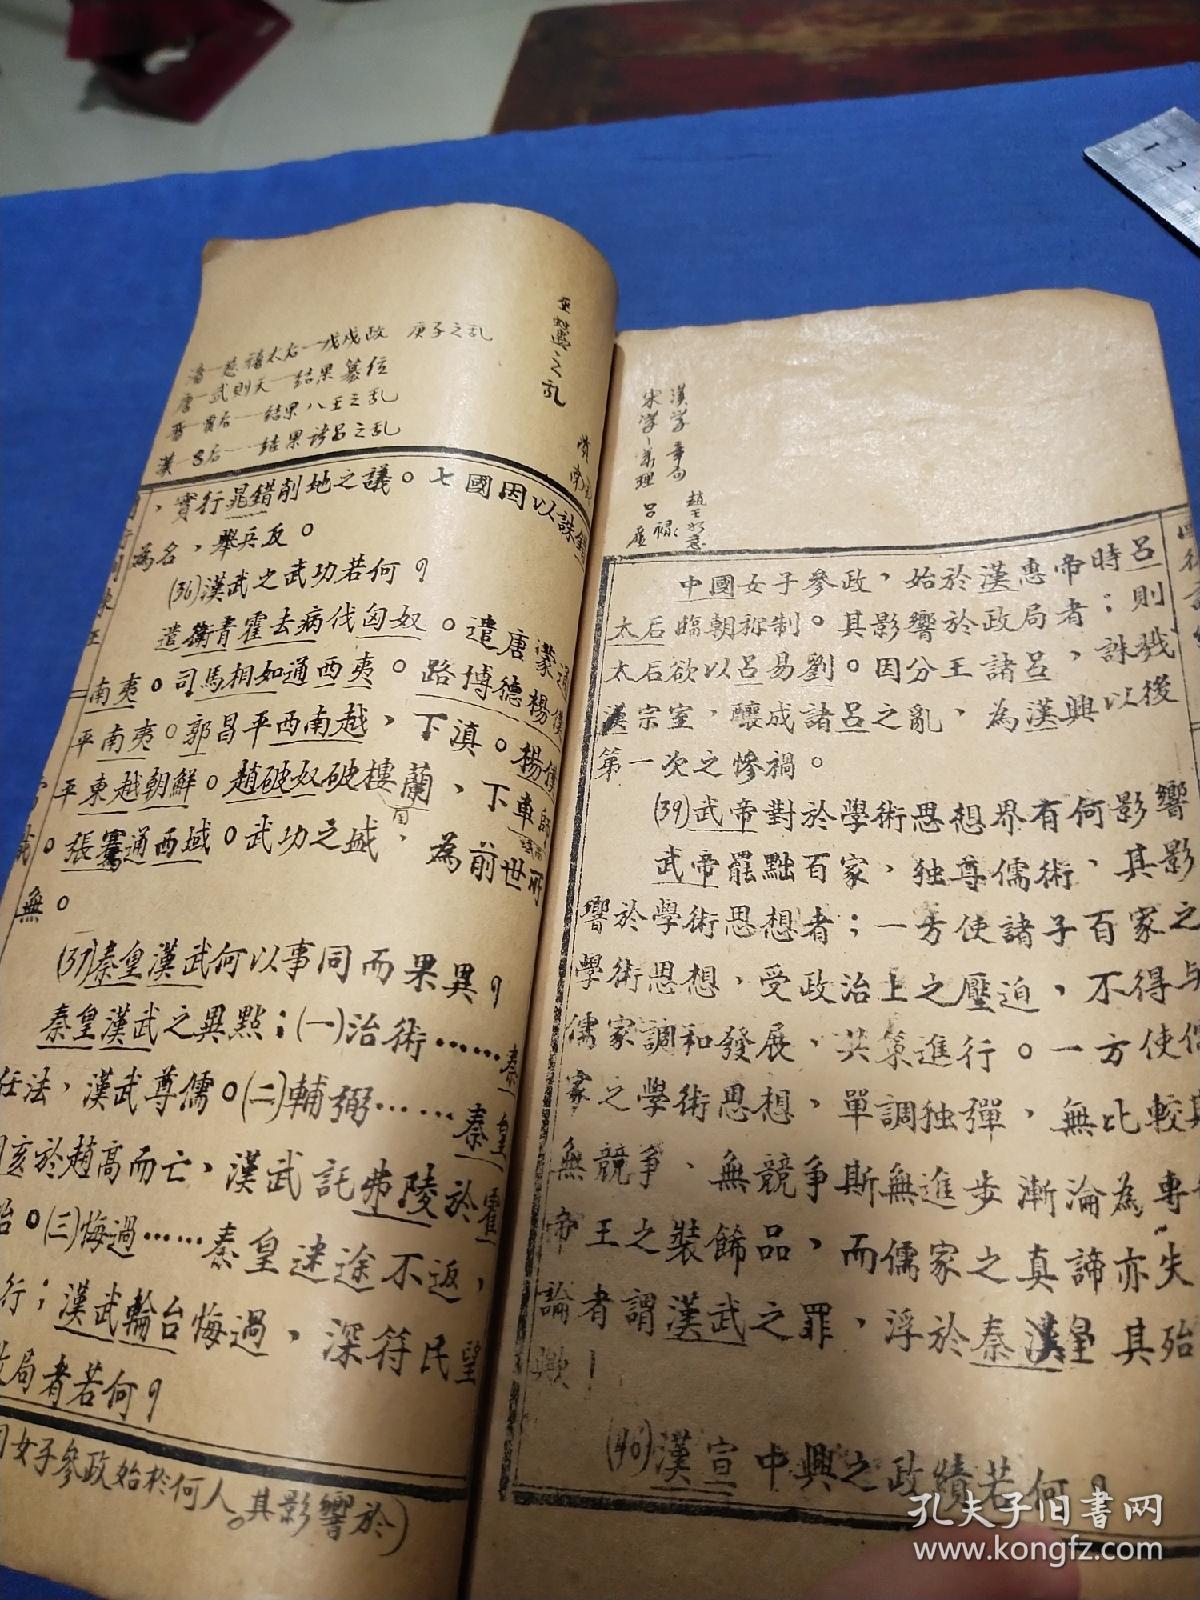 巫蠱之乱
清一慈禧太后一戊戌政 庚子之乱
唐一武則天一結果篡位
晋一賈后一結果八王之乱
漢一吕后一結果诸吕之乱
，實行晁錯削地之議。七國因以誅錯
為名，舉兵反。
(36)漢武之武功若何？
遣衛青霍去病伐匈奴。遣唐蒙通
南夷。司馬相如通西夷。路博德楊僕
平南夷。郭昌平西南越，下滇。楊僕
平東越朝鮮。趙破奴破樓蘭，下車師
。張騫通西域。武功之盛，為前世所
無。
(37)秦皇漢武何以事同而果異？
秦皇漢武之異點；(一)治術……秦
任法，漢武尊儒。(二)輔弼……秦皇
亥於趙高而亡，漢武託弗陵於霍
。(三)悔過……秦皇迷途不返，
行；漢武輪台悔過，深符民望
局者若何？
女子參政始於何人。其影響於)
漢学 章句
宋学一義理
趙王如意
吕禄
吕產
中國女子參政，始於漢惠帝時吕
太后臨朝称制。其影響於政局者；則
太后欲以吕易劉。因分王諸吕，誅戕
漢宗室，釀成諸吕之亂，為漢興以後
第一次之慘禍。
(39)武帝對於學術思想界有何影響
武帝罷黜百家，独尊儒術，其影
響於學術思想者；一方使諸子百家之
學術思想，受政治上之壓迫，不得与
儒家調和發展，共策進行。一方使儒
家之學術思想，單調独彈，無比較其
無競爭、無競爭斯無進步漸淪為專
帝王之裝飾品，而儒家之真諦亦失
論者謂漢武之罪，浮於秦漢皇其殆
歟！
(40)漢宣中興之政績若何？
孔夫子旧书网
www.kongfz.com
1 2